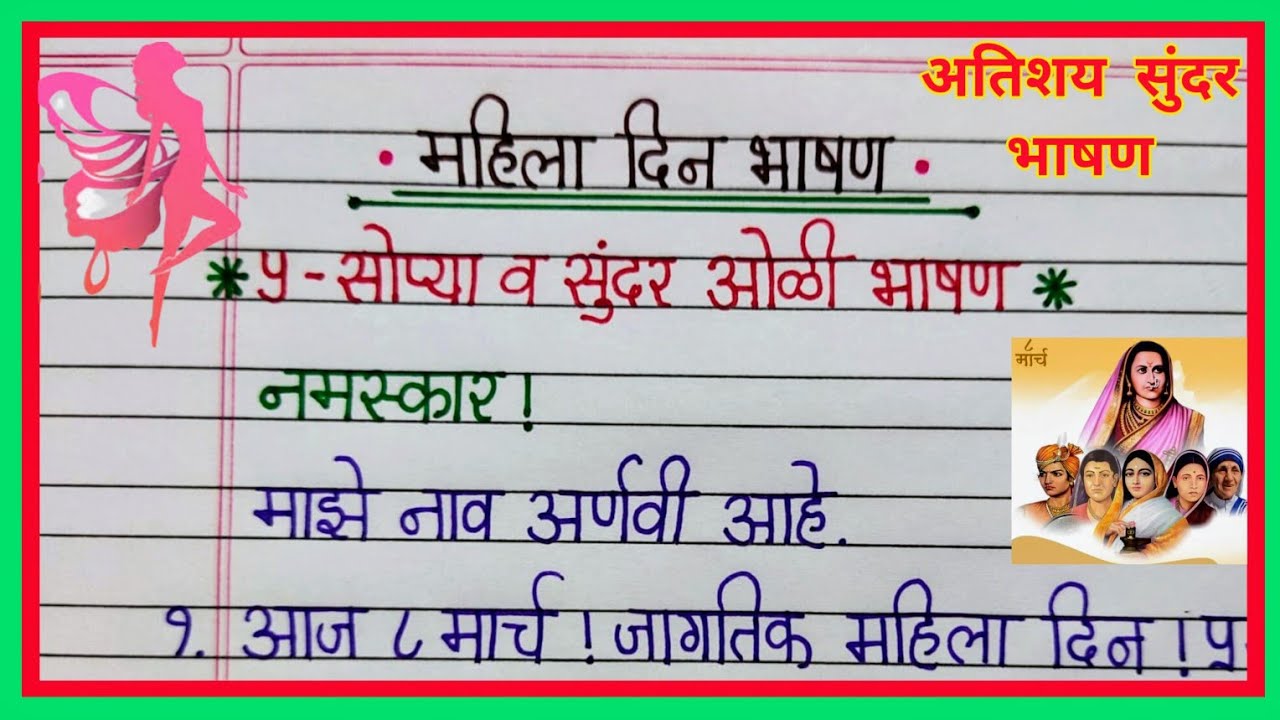 अतिशय सुंदर
भाषण
• महिला दिन भाषण •
* ५ - सोप्या व सुंदर ओळी भाषण *
नमस्कार !
८
मार्च
माझे नाव अर्णवी आहे.
१. आज ८ मार्च ! जागतिक महिला दिन !